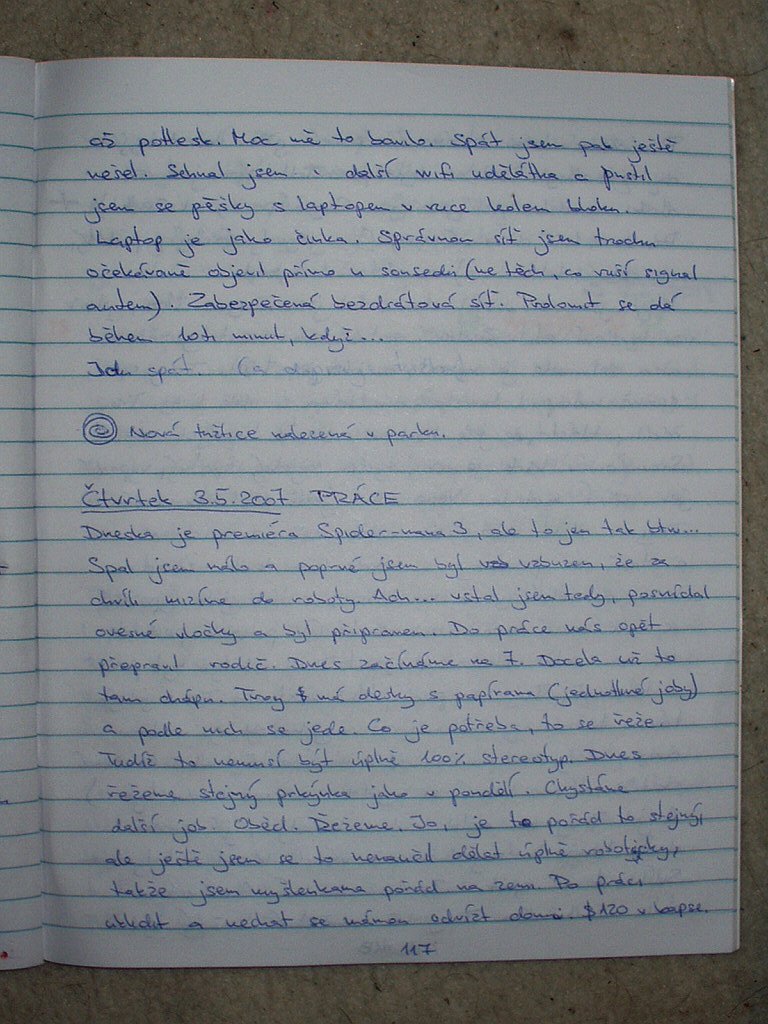 až potlesk. Moc mě to bavilo. Spát jsem pak ještě
nešel. Sehnal jsem i další wifi udělátka a pustil
jsem se pěšky s laptopem v ruce kolem bloku.
Laptop je jako činka. Správnou síť jsem trochu
očekávaně objevil přímo u sousedů (ne těch, co ruší signal
autem). Zabezpečená bezdrátová síť. Prolomit se dá
během 10ti minut, když...
Jdu spát.
Nová tržtice nalezená v parku.
Čtvrtek 3.5.2007 PRÁCE
Dneska je premiéra Spider-mana 3, ale to jen tak btw...
Spal jsem málo a poprvé jsem byl vzbuzen, že za
chvíli mizíme do roboty. Ach... vstal jsem tedy, posnídal
ovesné vločky a byl připraven. Do práce nás opět
přepravil rodič. Dnes začínáme na 7. Docela už to
tam chápu. Troy má desky s papírama (jednotlivé joby)
a podle nich se jede. Co je potřeba, to se řeže.
Tudíž to nemusí být úplně 100% stereotyp. Dnes
řežeme stejný prkýnka jako v pondělí. Chystáme
další job. Oběd. Řežeme. Jo, je to pořád to stejný,
ale ještě jsem se to nenaučil dělat úplně roboticky,
takže jsem myšlenkama pořád na zemi. Po práci
uklidit a nechat se mámou odvézt domů. $120 v kapse.
117